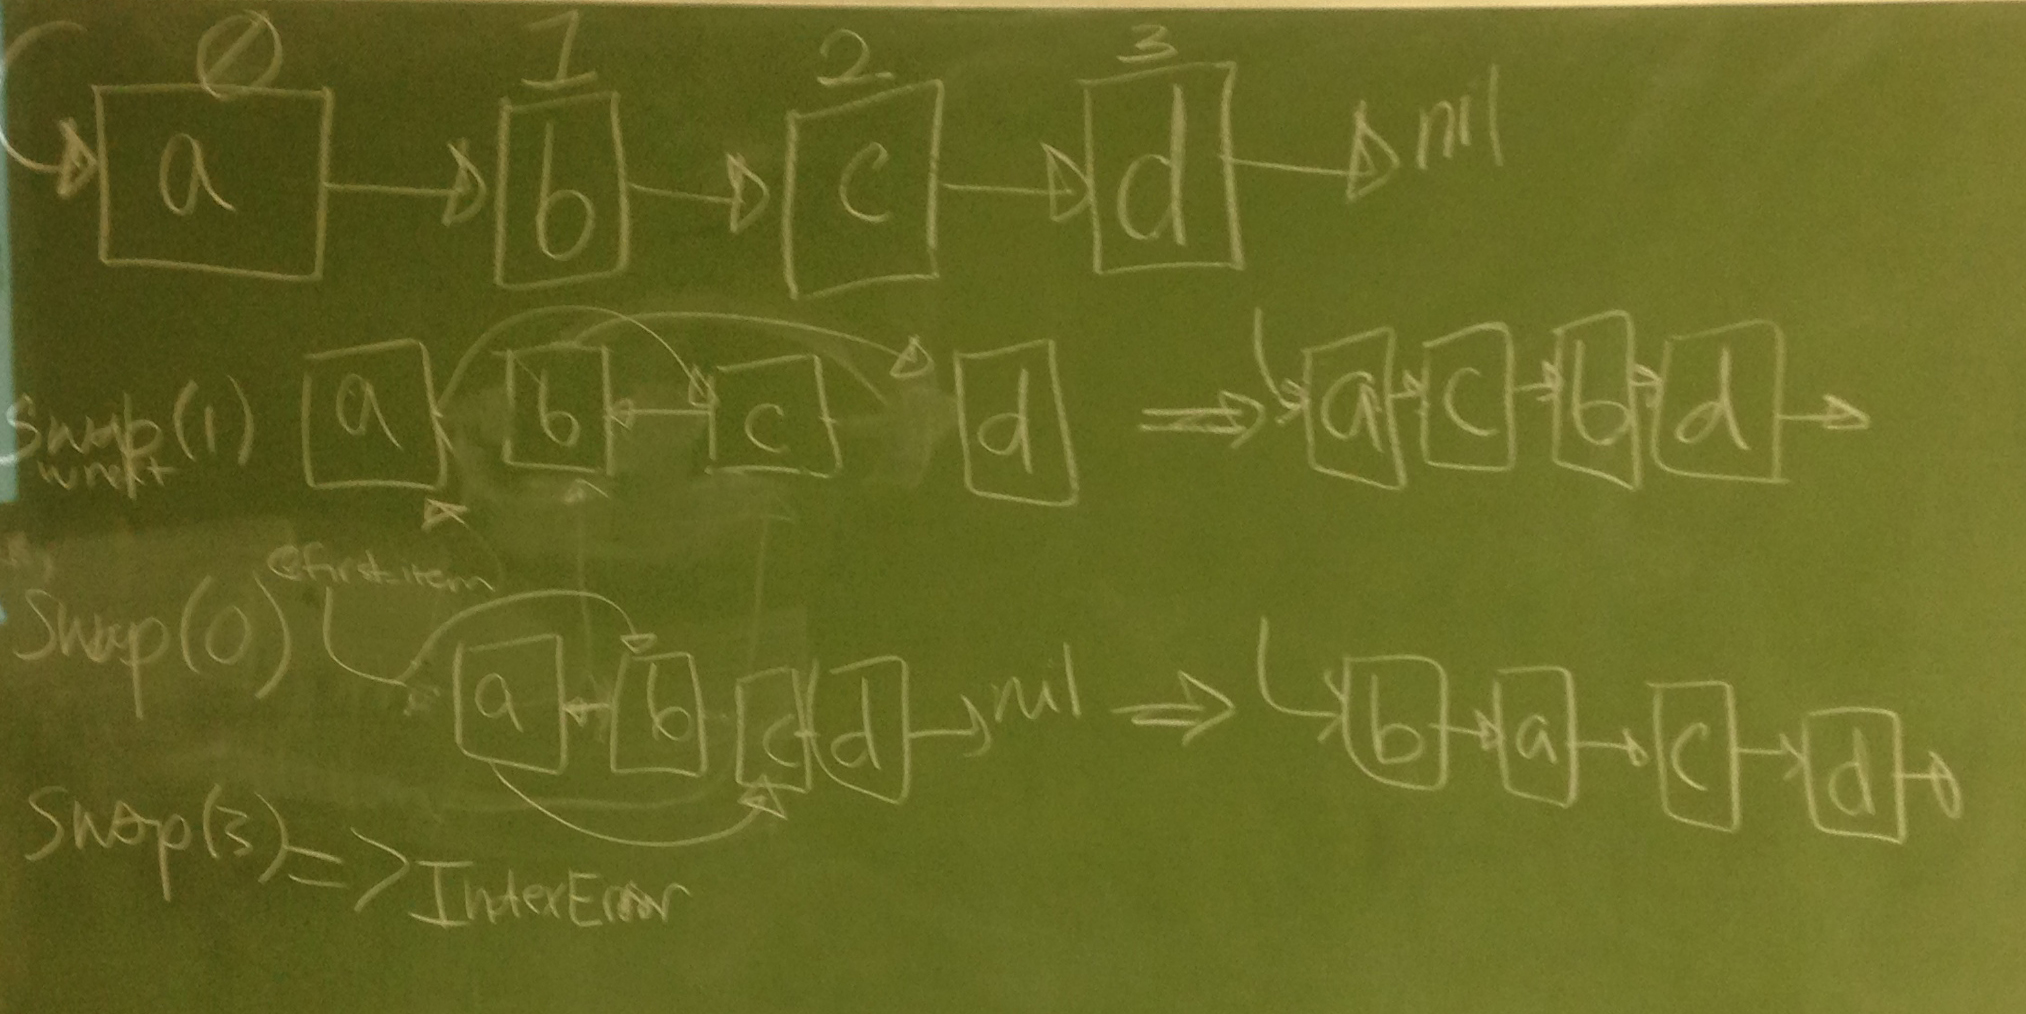 0 1 2 3
a b c d nil
Swap(1) a b c d a c b d
w next
@first_item
Swap(0) a b c d nil b a c d
Swap(3) => IndexError